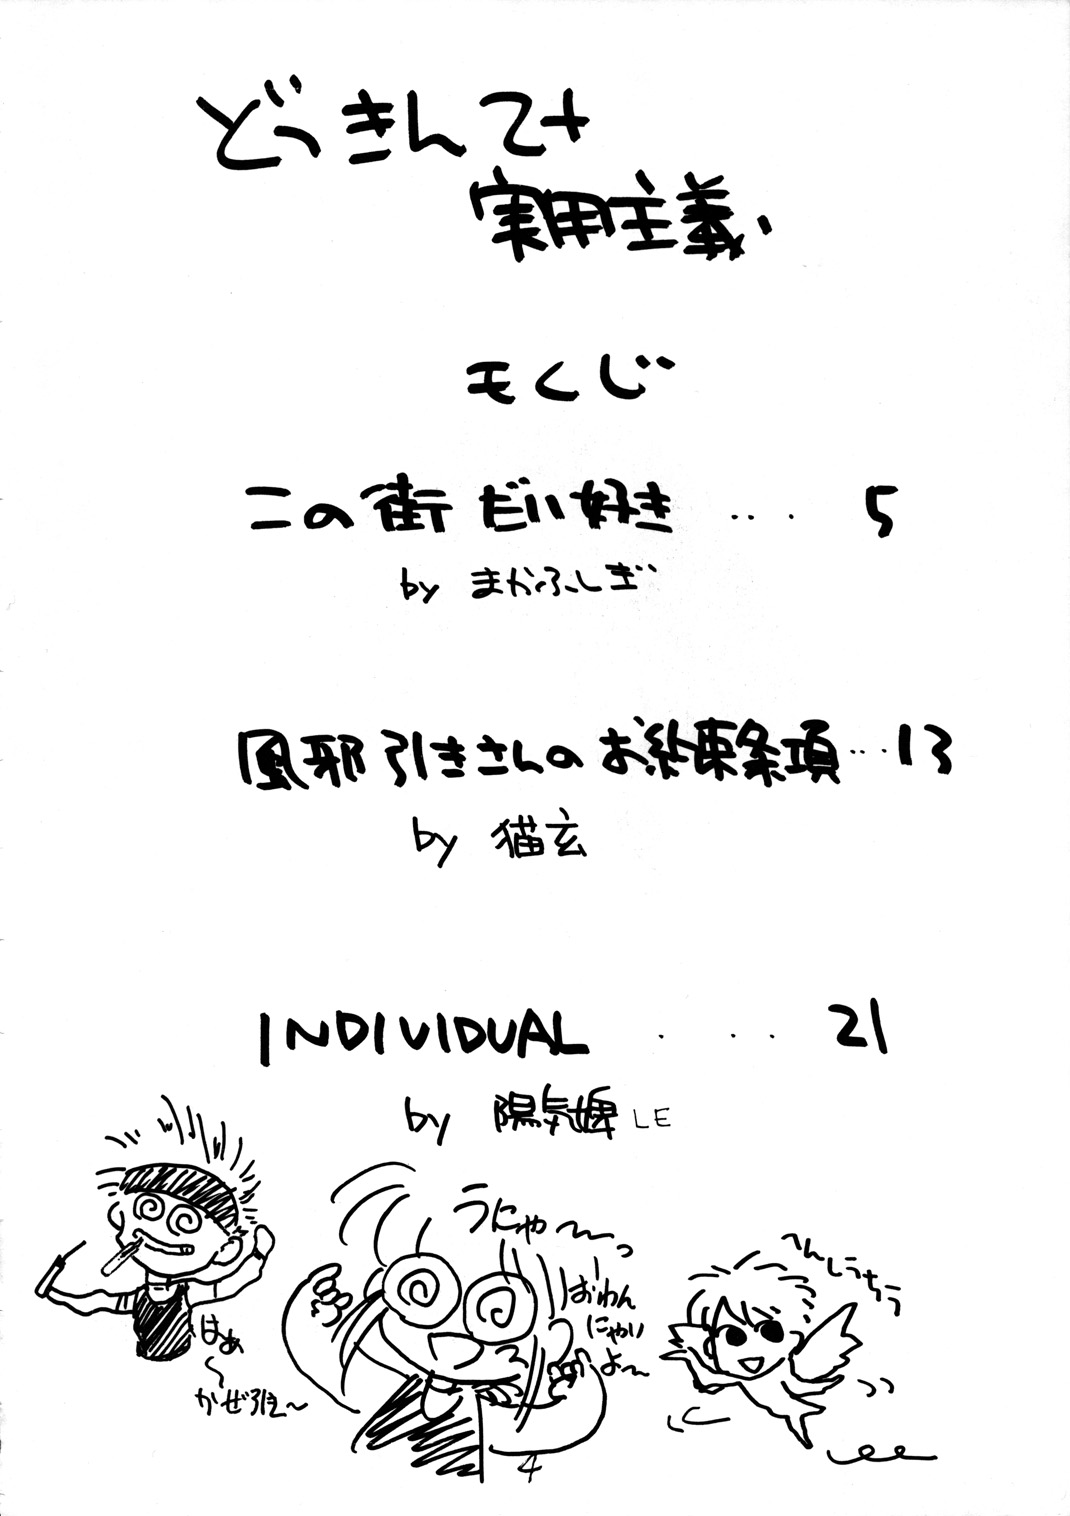 どっきんてｨ
実用主義、
モくじ
この街 だい好き ・・・・ 5
by まかふしぎ
風邪引きさんのお約束条項・・・13
by 猫玄
INDIVIDUAL ・・・・ 21
by 陽気婢 LE
うにゃ〜〜っ
はぁ
〜
かぜ引え〜
おわん
にゃい
よ〜
へんしうちう
4